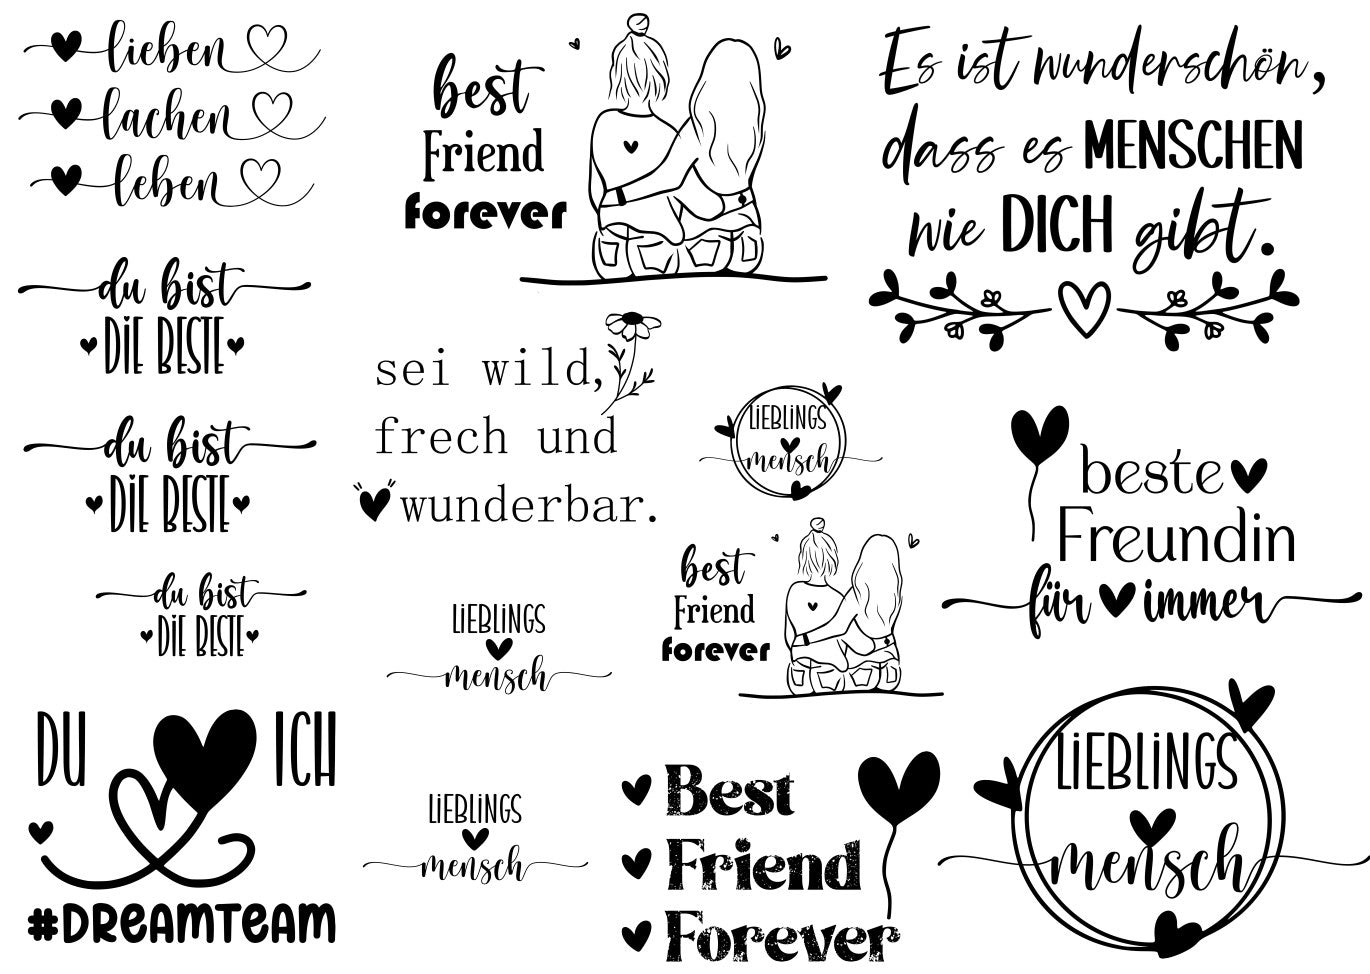 lieben
lachen
leben
best
Friend
forever
Es ist wunderschön,
dass es MENSCHEN
wie DICH gibt.
du bist
DIE BESTE
sei wild,
frech und
wunderbar.
LIEBLINGS
mensch
beste
Freundin
für immer
du bist
DIE BESTE
best
Friend
forever
du bist
DIE BESTE
LIEBLINGS
mensch
DU ICH
#DREAMTEAM
LIEBLINGS
mensch
Best
Friend
Forever
LIEBLINGS
mensch